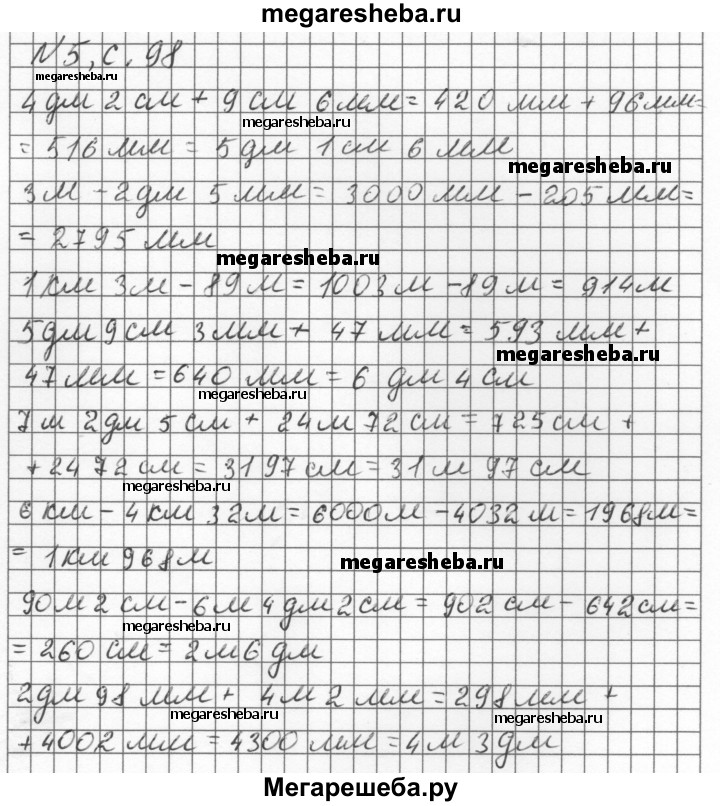 megaresheba.ru
N5, с. 98
megaresheba.ru
4 дм 2 см + 9 см 6 мм = 420 мм + 96 мм =
megaresheba.ru
= 516 мм = 5 дм 1 см 6 мм
megaresheba.ru
3 м - 2 дм 5 мм = 3000 мм - 205 мм =
= 2795 мм
megaresheba.ru
1 км 3 м - 89 м = 1003 м - 89 м = 914 м
5 дм 9 см 3 мм + 47 мм = 593 мм +
megaresheba.ru
47 мм = 640 мм = 6 дм 4 см
megaresheba.ru
7 м 2 дм 5 см + 24 м 72 см = 725 см +
+ 2472 см = 3197 см = 31 м 97 см
megaresheba.ru
6 км - 4 км 32 м = 6000 м - 4032 м = 1968 м =
= 1 км 968 м
megaresheba.ru
90 м 2 см - 6 м 4 дм 2 см = 902 см - 642 см =
megaresheba.ru
= 260 см = 2 м 6 дм
2 дм 98 мм + 4 м 2 мм = 298 мм +
megaresheba.ru
megaresheba.ru
+ 4002 мм = 4300 мм = 4 м 3 дм
Мегарешеба.ру